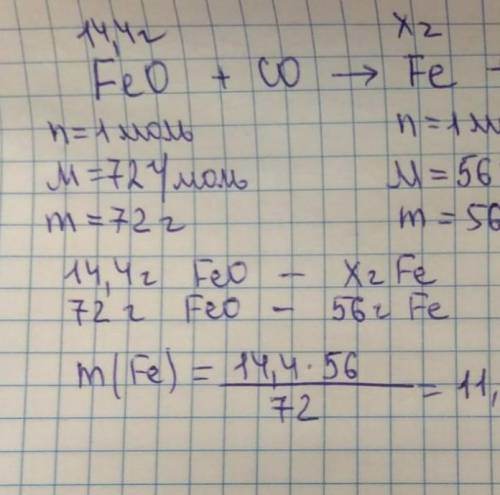 14,4г Xг
FeO + CO → Fe -
n=1моль n=1м
M=72г/моль M=56
m=72г m=56
14,4г FeO – Xг Fe
72г FeO – 56г Fe
m(Fe) = 14,4·56 / 72 = 11,